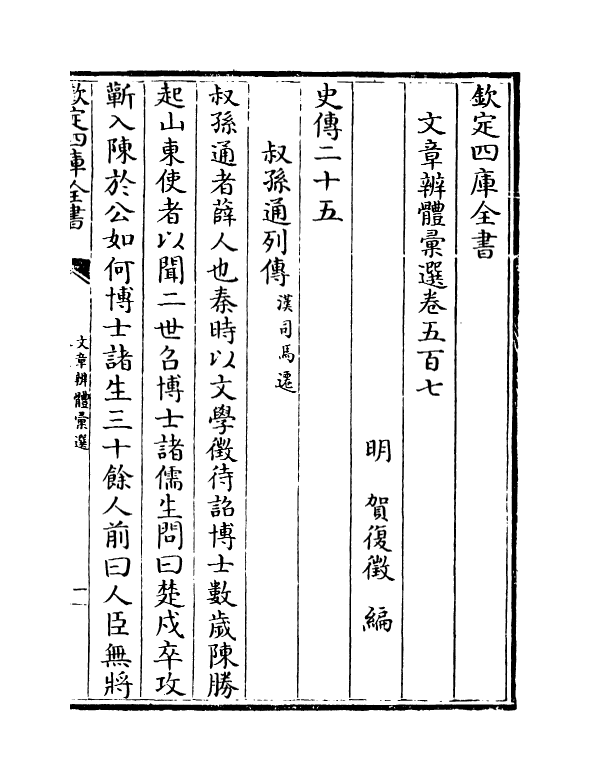 欽定四庫全書
文章辨體彚選卷五百七
明 賀復徵 編
史傳二十五
叔孫通列傳 漢司馬遷
叔孫通者薛人也秦時以文學徵待詔博士數歲陳勝
起山東使者以聞二世召博士諸儒生問曰楚戍卒攻
蘄入陳於公如何博士諸生三十餘人前曰人臣無將
欽定四庫全書
文章辨體彚選
一